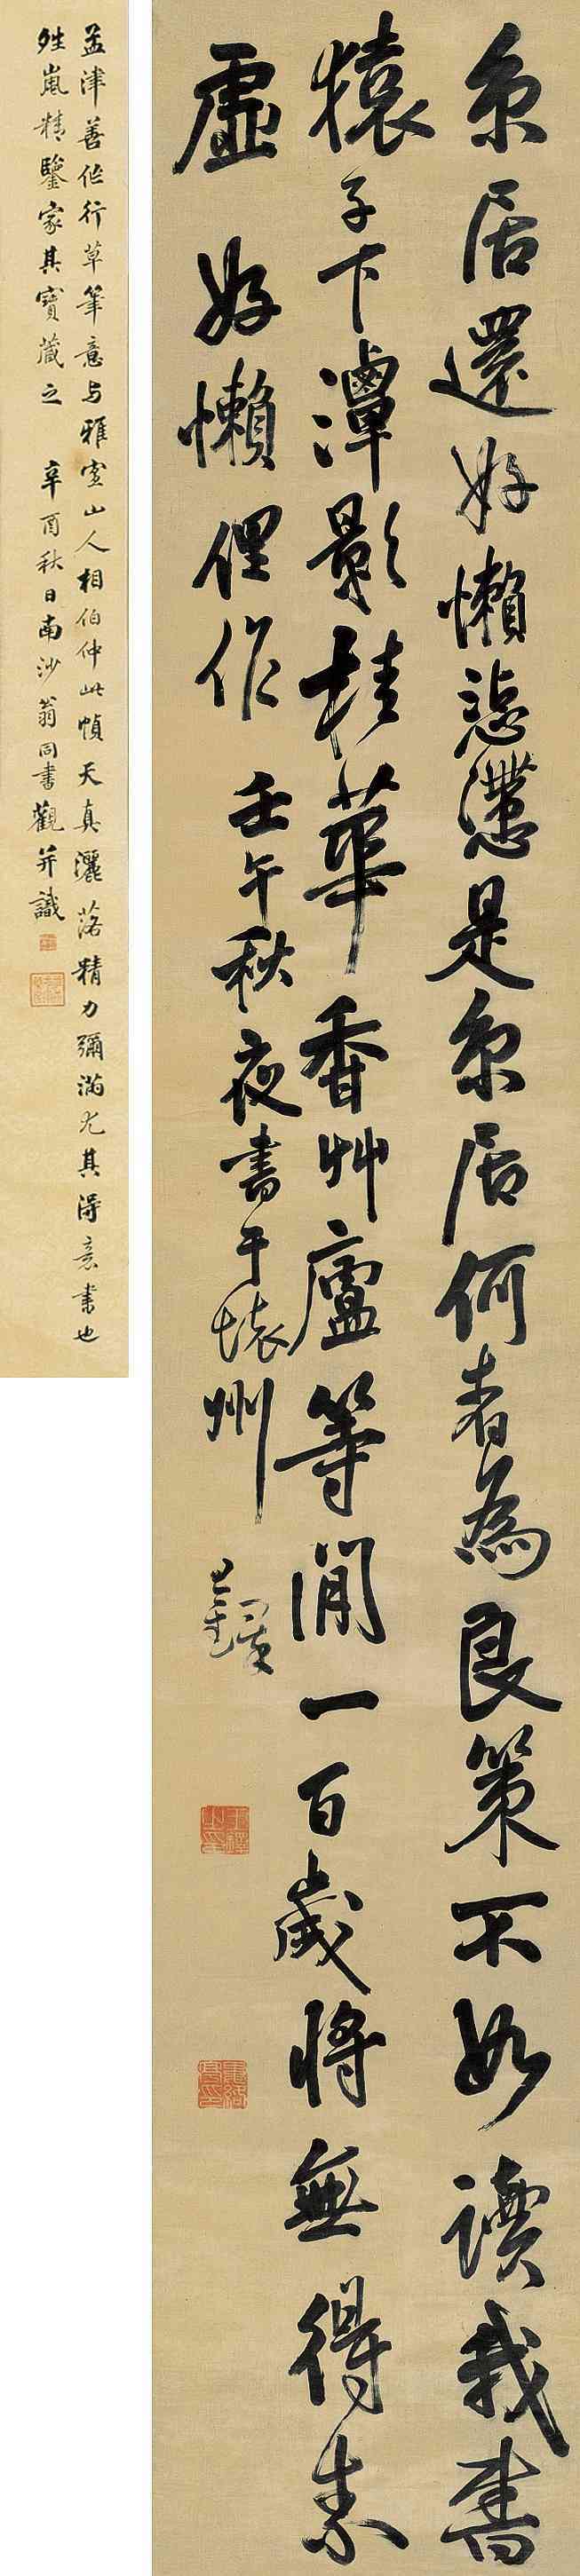 京居還好懶惉懘是京居何者為良策不如讀我書
猿子下潭影桂華香艸廬等閒一百歲將無得素
虛 好懶俚作 壬午秋夜書于懷州 王鐸
孟津善作行草筆意与雅宜山人相伯仲此幀天真灑落精力彌滿尤其得意書也
姓嵐精鑒家其寶藏之 辛酉秋日南沙翁同書觀并識